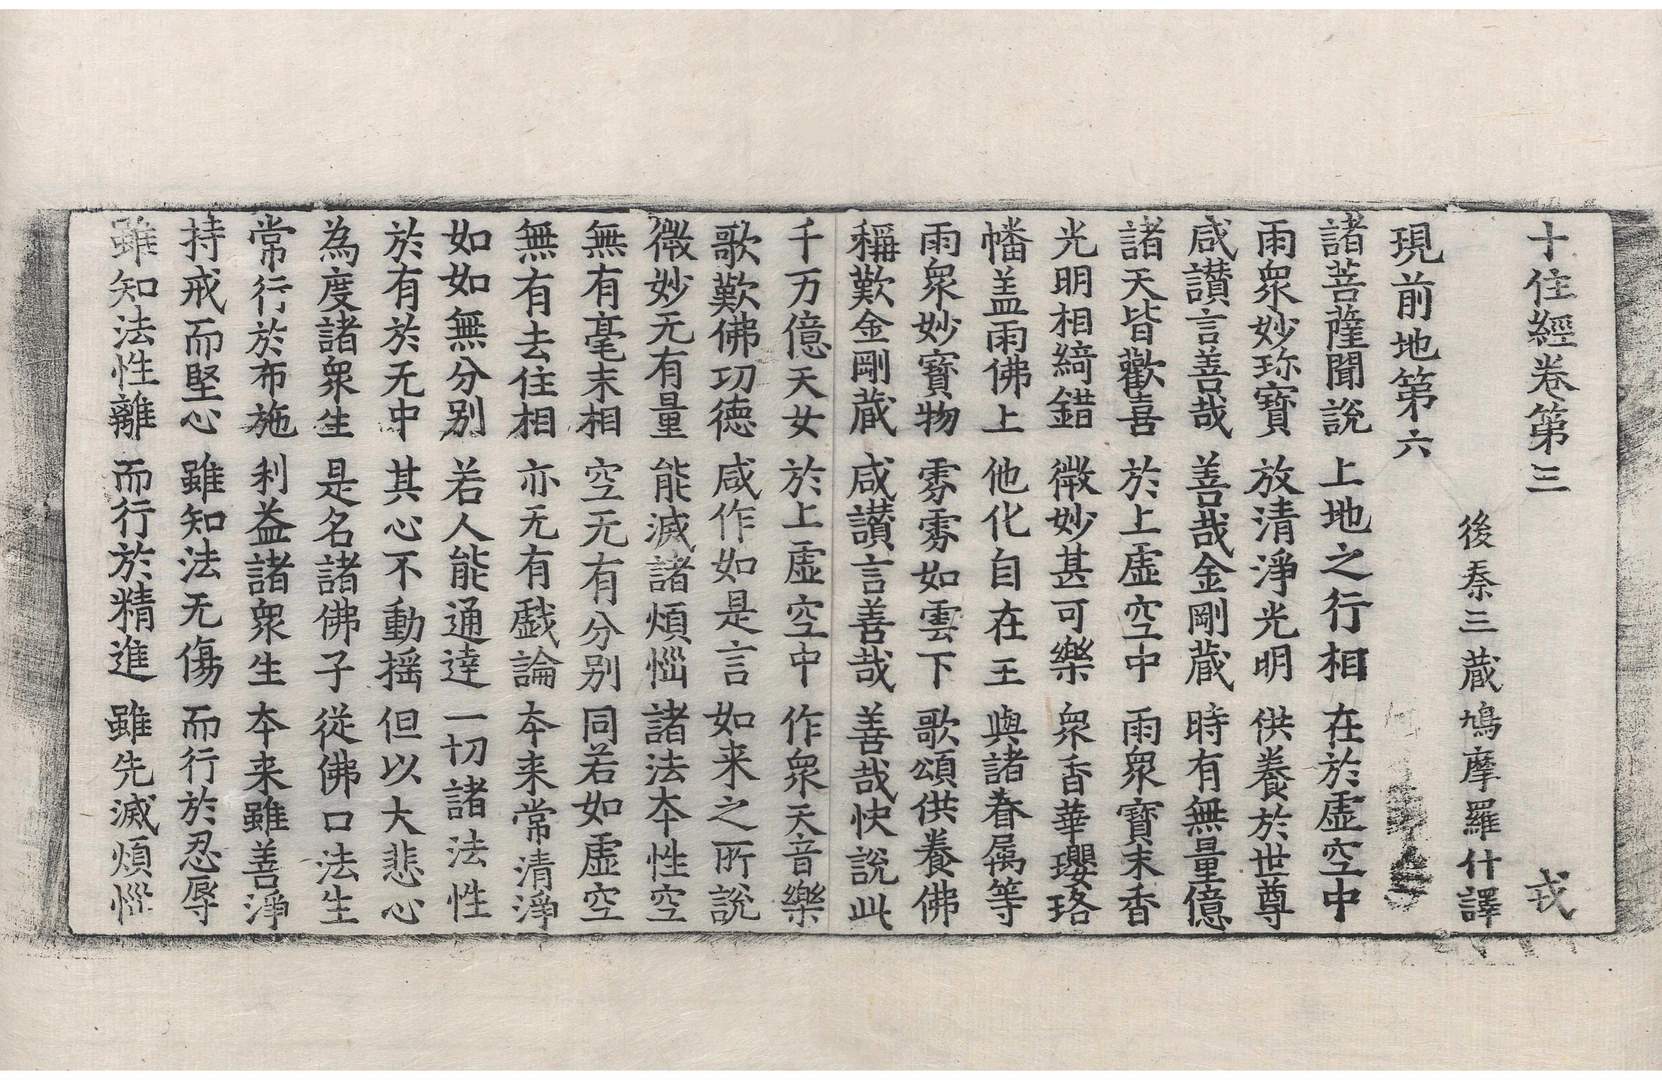 十住經卷第三 戎
後秦三藏鳩摩羅什譯
現前地第六
諸菩薩聞說 上地之行相 在於虛空中
雨眾妙珎寶 放清淨光明 供養於世尊
咸讚言善哉 善哉金剛藏 時有無量億
諸天皆歡喜 於上虛空中 雨眾寶末香
光明相綺錯 微妙甚可樂 眾香華瓔珞
幡盖雨佛上 他化自在王 與諸眷属等
雨眾妙寶物 雰雰如雲下 歌頌供養佛
稱歎金剛藏 咸讚言善哉 善哉快說此
千万億天女 於上虛空中 作眾天音樂
歌歎佛功德 咸作如是言 如来之所說
微妙无有量 能滅諸煩惱 諸法本性空
無有毫末相 空无有分別 同若如虛空
無有去住相 亦无有戲論 本来常清淨
如如無分別 若人能通達 一切諸法性
於有於无中 其心不動搖 但以大悲心
為度諸眾生 是名諸佛子 從佛口法生
常行於布施 利益諸眾生 本来雖善淨
持戒而堅心 雖知法无傷 而行於忍辱
雖知法性離 而行於精進 雖先滅煩惱